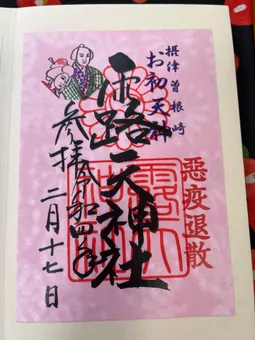 摂津曽根崎
お初天神
露路天神社
惡疫退散
参拝
令和四年
二月十七日